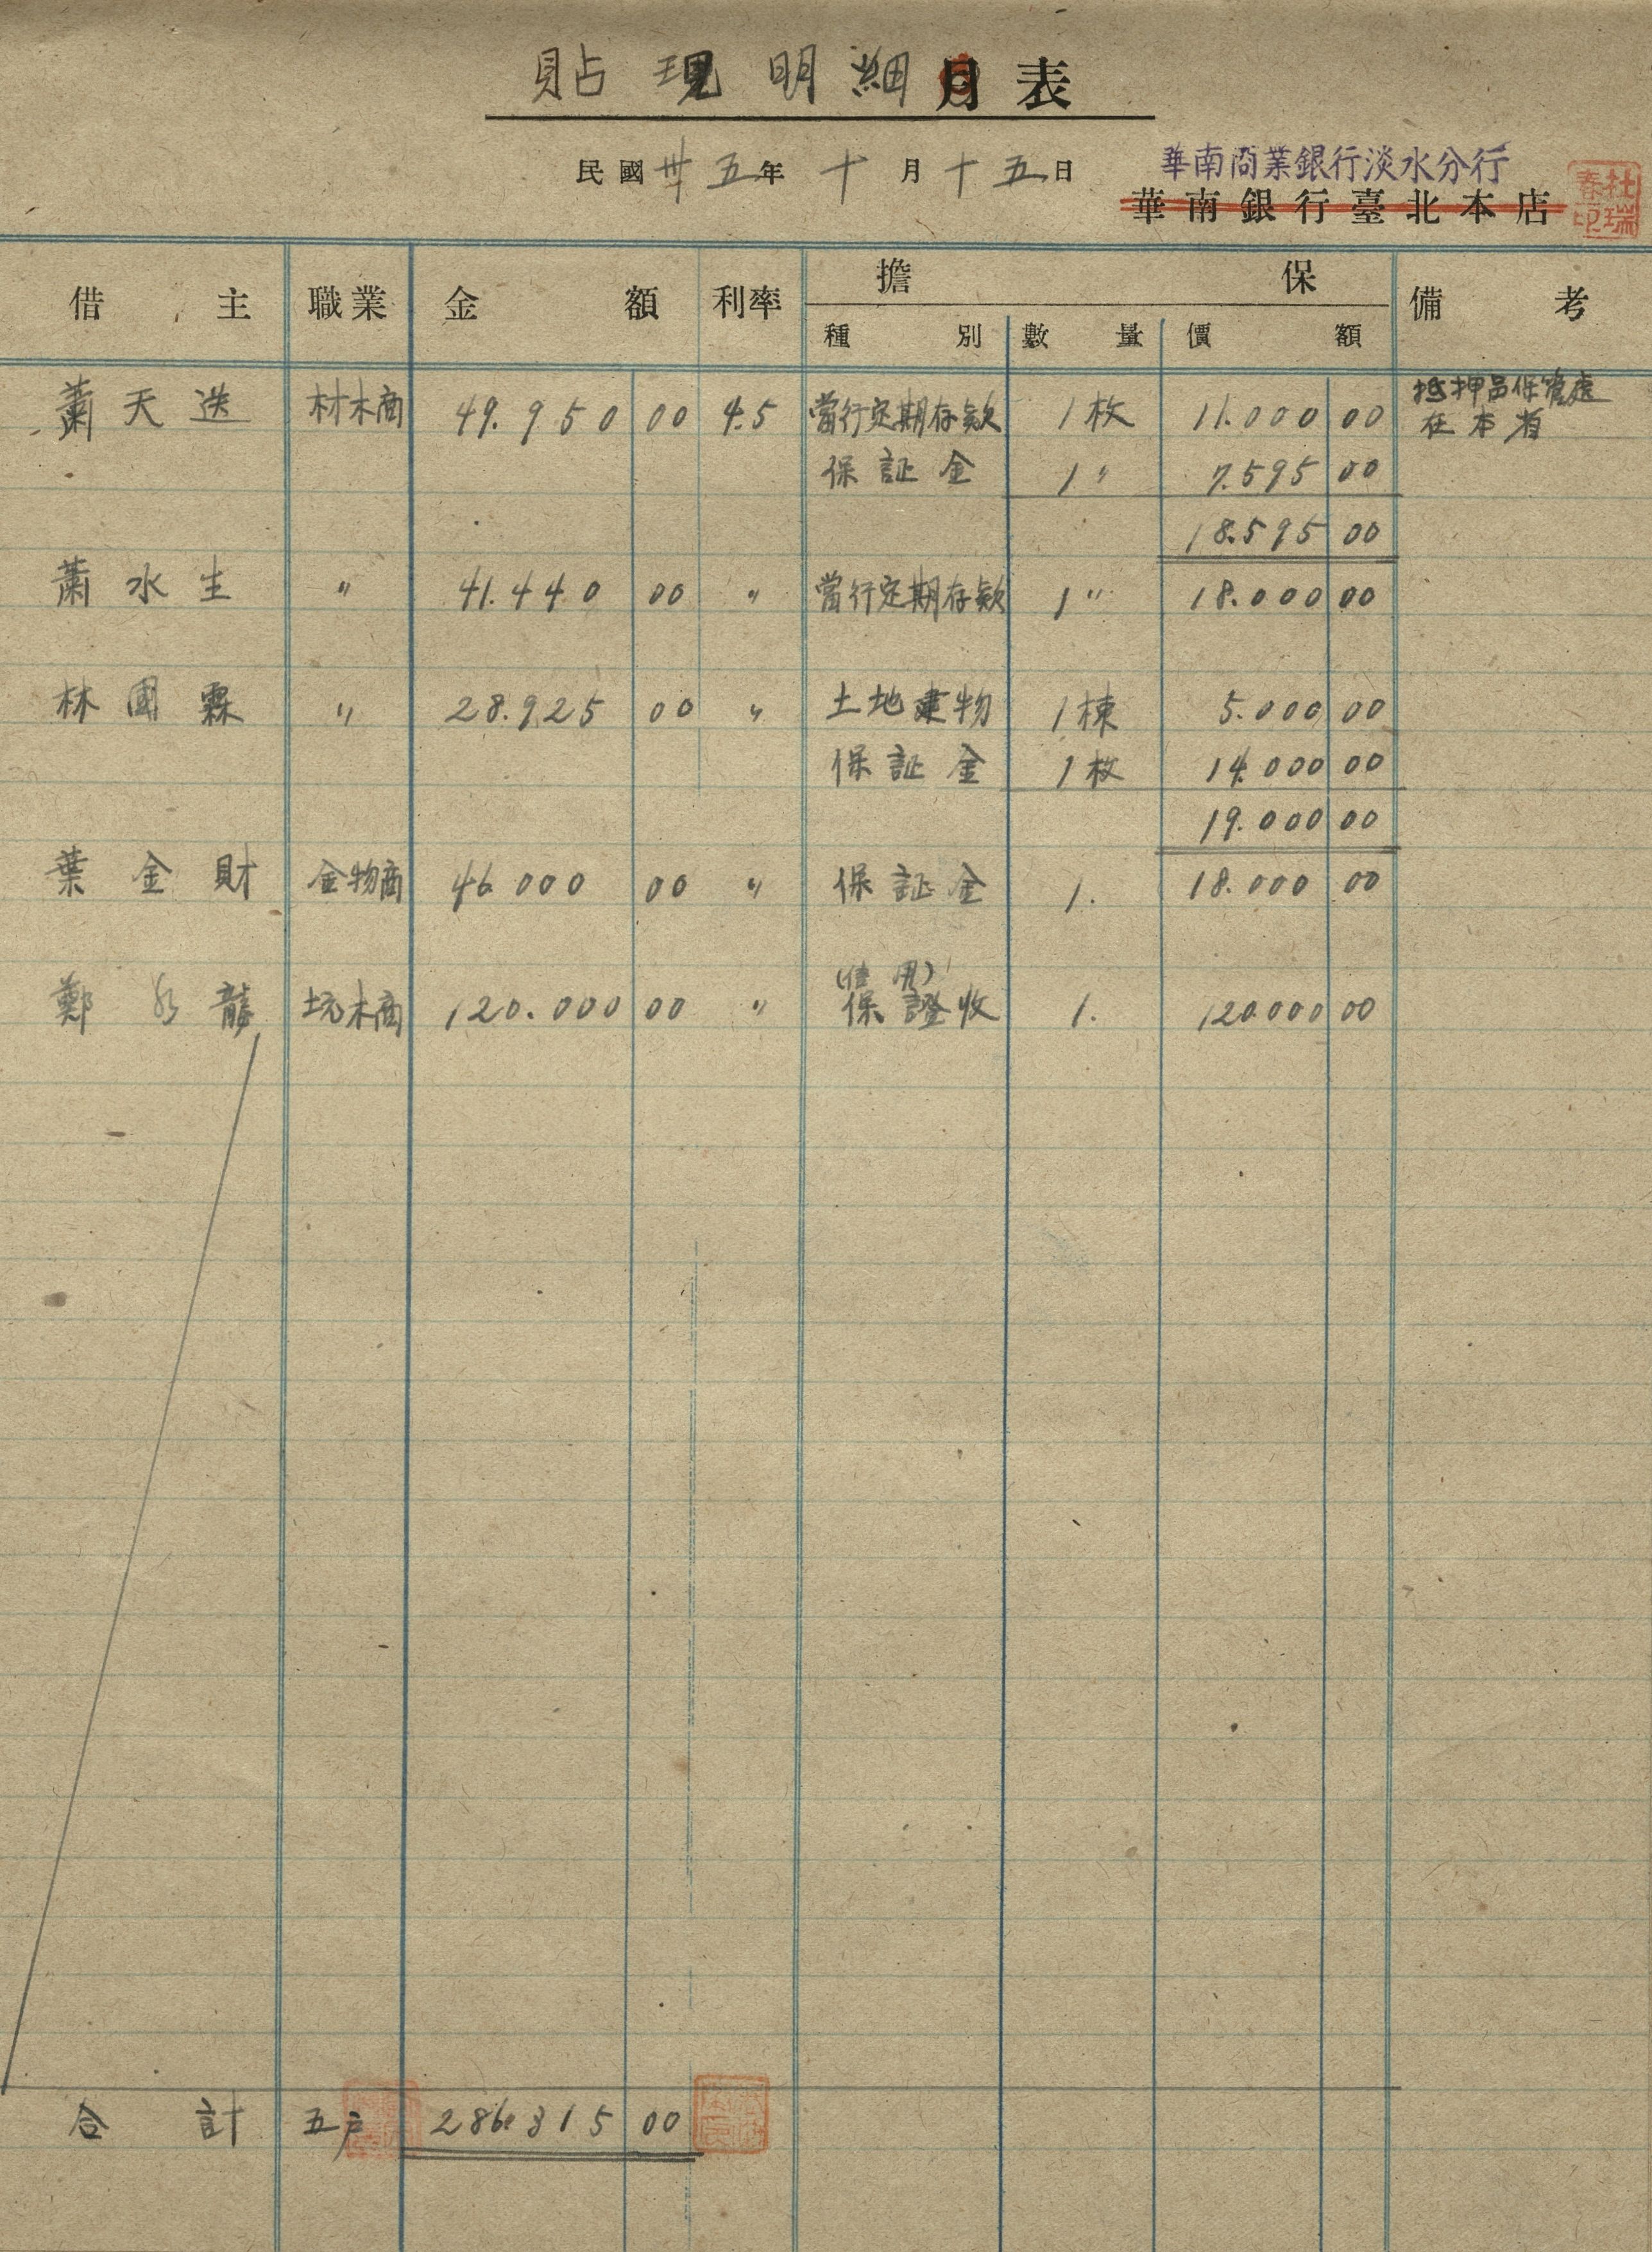 貼現明細月表
民國卅五年十月十五日
華南商業銀行淡水分行
華南銀行臺北本店
杜瑞春印
借主 職業 金額 利率 擔保 備考
種別 數量 價額
蕭天送 材木商 49.950 00 4.5 當行定期存款 1枚 11.000 00 抵押品保管處
在本省
保証金 1〃 7.595 00
18.595 00
蕭水生 〃 41.440 00 〃 當行定期存款 1〃 18.000 00
林國霖 〃 28.925 00 〃 土地建物 1棟 5.000 00
保証金 1枚 14.000 00
19.000 00
葉金財 金物商 46.000 00 〃 保証金 1. 18.000 00
(信用)
鄭 龍 木商 120.000 00 〃 保證 1. 120.000 00
合計 五戶 286.315 00